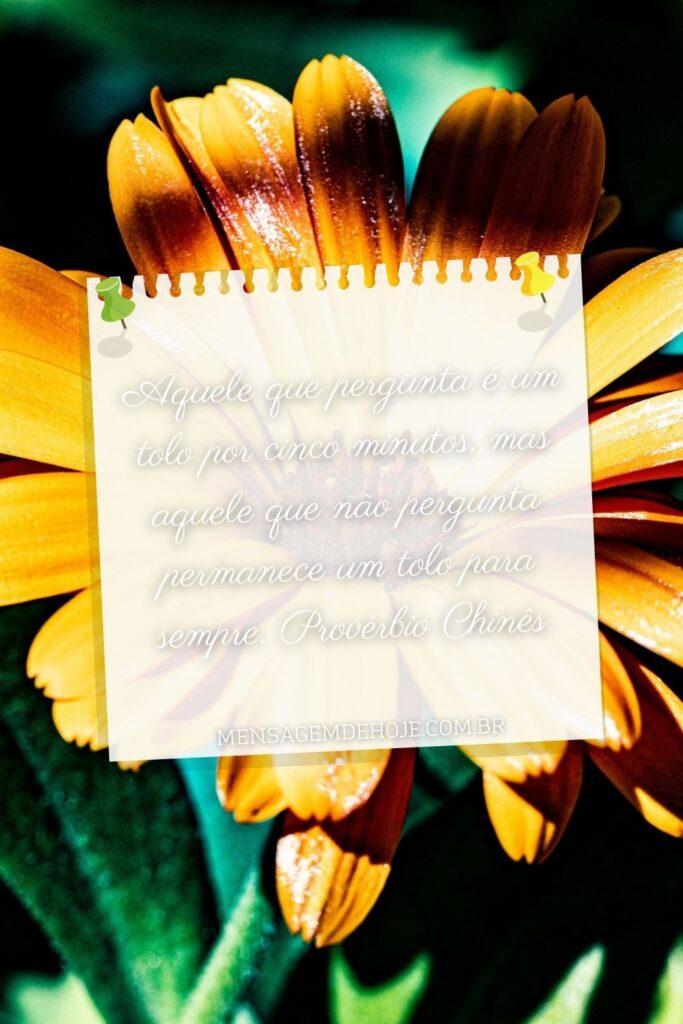 Aquele que pergunta é um
tolo por cinco minutos, mas
aquele que não pergunta
permanece um tolo para
sempre. Provérbio Chinês
MENSAGEMDEHOJE.COM.BR